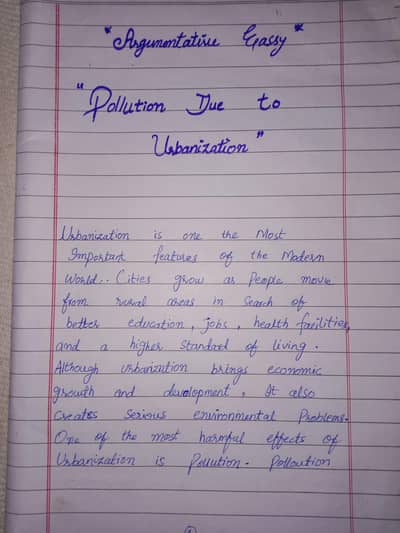 "Argumentative Essay"
"Pollution Due to
Urbanization"
Urbanization is one the Most
Important features of the Modern
World.. Cities grow as People move
from rural areas in Search of
better education, jobs, health facilities,
and a higher Standard of living.
Although urbanization brings economic
growth and development, It also
creates Serious environmental Problems.
One of the most harmful effects of
Urbanization is Pollution. Polloution